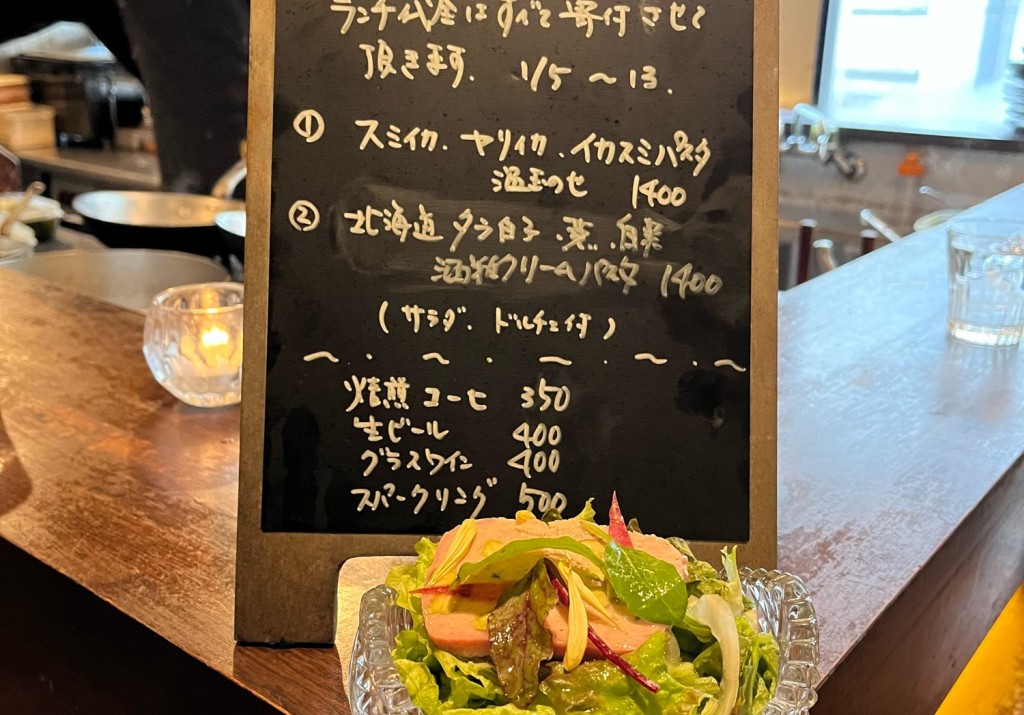 ランチ代金はすべて寄付させて
頂きます. 1/5 ～ 13.
① スミイカ. ヤリイカ. イカスミパスタ
温玉のせ 1400
② 北海道 タラ白子.葱.白菜
酒粕クリームパスタ 1400
(サラダ. ドルチェ付)
～ . ～ . ～ . ～ . ～
焙煎コーヒ 350
生ビール 400
グラスワイン 400
スパークリング 500